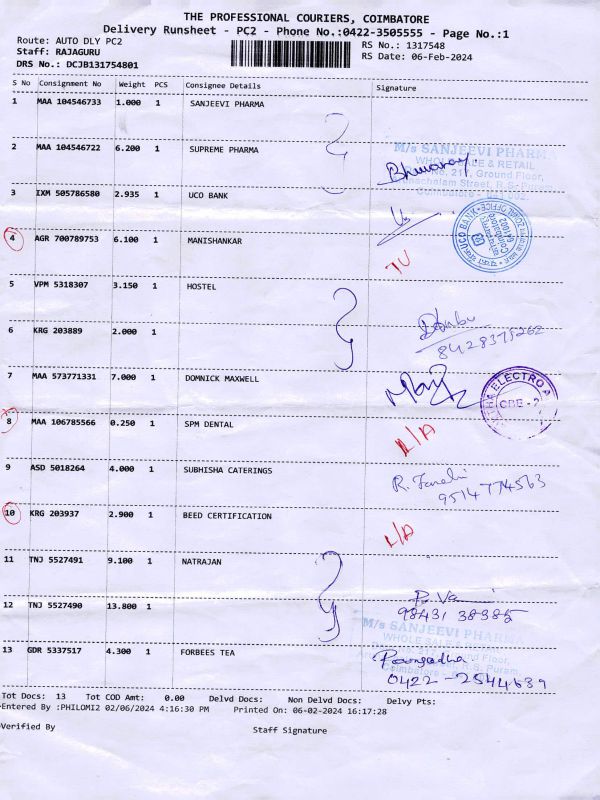 THE PROFESSIONAL COURIERS, COIMBATORE
Delivery Runsheet - PC2 - Phone No.:0422-3505555 - Page No.:1
Route: AUTO DLY PC2
Staff: RAJAGURU
DRS No.: DCJB131754801
RS No.: 1317548
RS Date: 06-Feb-2024
S No Consignment No Weight PCS Consignee Details Signature
1 MAA 104546733 1.000 1 SANJEEVI PHARMA
2 MAA 104546722 6.200 1 SUPREME PHARMA
M/s SANJEEVI PHARMA
WHOLESALE & RETAIL
No. 217, Ground Floor,
R.S. Puram,
3 IXM 505786580 2.935 1 UCO BANK
UCO BANK
ZONAL OFFICE
Coimbatore
641002
4 AGR 700789753 6.100 1 MANISHANKAR
5 VPM 5318307 3.150 1 HOSTEL
6 KRG 203889 2.000 1
8428375262
7 MAA 573771331 7.000 1 DOMNICK MAXWELL
ELECTRO
CBE - 2
8 MAA 106785566 0.250 1 SPM DENTAL
L/A
9 ASD 5018264 4.000 1 SUBHISHA CATERINGS
9514774563
10 KRG 203937 2.900 1 BEED CERTIFICATION
L/A
11 TNJ 5527491 9.100 1 NATRAJAN
12 TNJ 5527490 13.800 1
98431 38385
M/s SANJEEVI PHARMA
WHOLE SALE
Ground Floor,
R.S. Puram
13 GDR 5337517 4.300 1 FORBEES TEA
0422 - 2544639
Tot Docs: 13 Tot COD Amt: 0.00 Delvd Docs: Non Delvd Docs: Delvy Pts:
Entered By :PHILOMI2 02/06/2024 4:16:30 PM Printed On: 06-02-2024 16:17:28
Verified By
Staff Signature